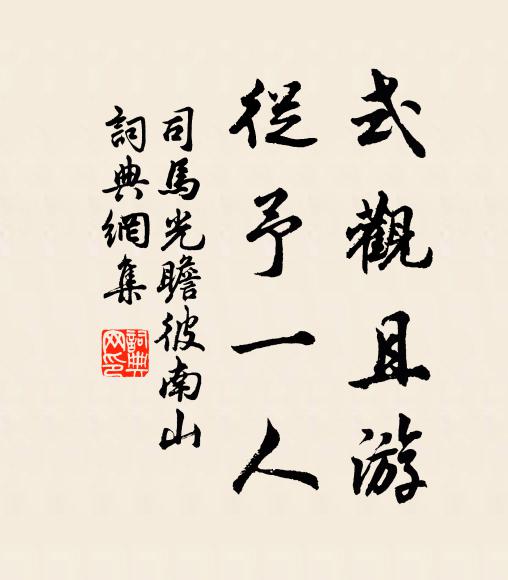 式觀且游
從予一人
司馬光瞻彼南山
詞典網集
詞典
网印